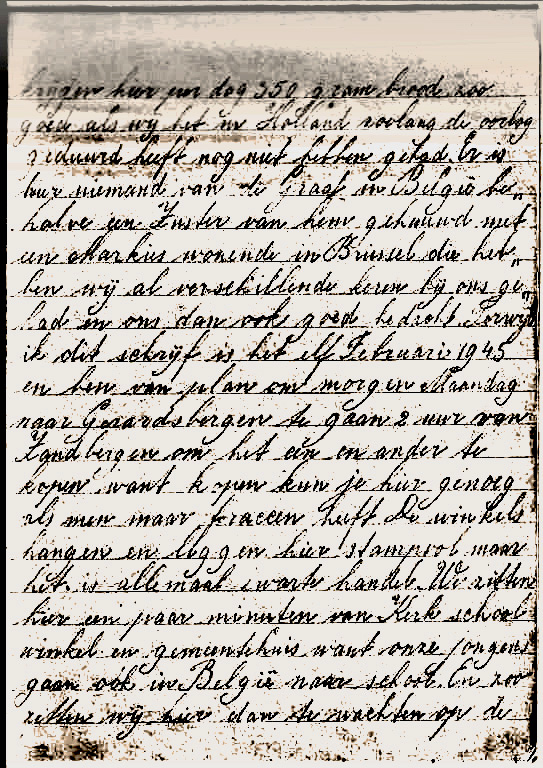 krijgen hier per dag 350 gram brood zoo
goed als wij het in Holland zoolang de oorlog
geduurd heeft nog niet hebben gehad. Er is
hier niemand van de Graaf in België be„
halve een Zuster van hem gehuuwd met
een Markies wonende in Brussel die heb„
ben wij al verschillende keren bij ons ge„
had en ons dan ook goed bedacht. Terwijl
ik dit schrijf is het elf Februarie 1945
en ben van plan om morgen Maandag
naar Gerardsbergen te gaan 2 uur van
Zandbergen om het een en ander te
kopen want kopen kun je hier genoeg
als men maar francen heeft. De winkels
hangen en leggen hier stampvol maar
het is allemaal zwarte handel. We zitten
hier een paar minuten van Kerk school
winkel en gemeentehuis want onze jongens
gaan ook in België naar school. En zoo
zitten wij hier dan te wachten op de